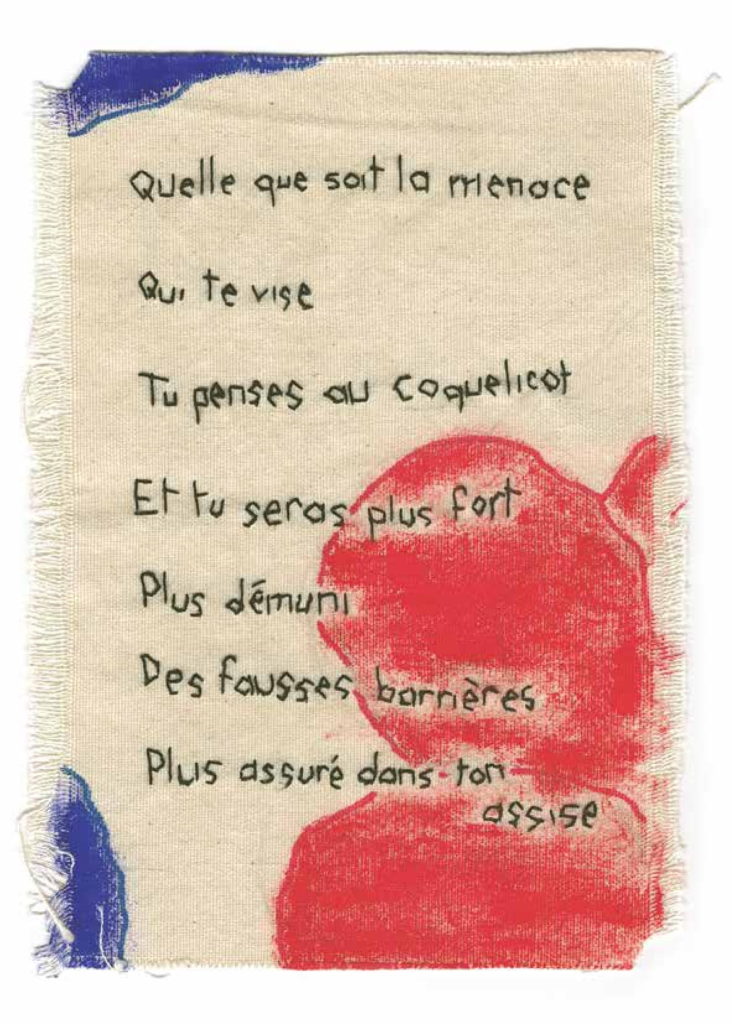 Quelle que soit la menace
Qui te vise
Tu penses au coquelicot
Et tu seras plus fort
Plus démuni
Des fausses barrières
Plus assuré dans ton
assise